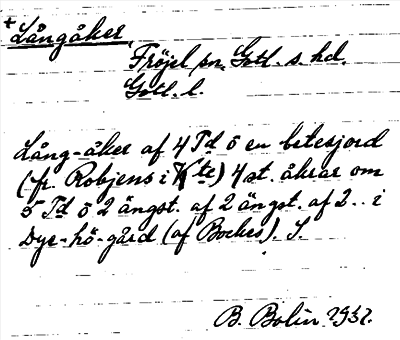 + Långåker
Fröjel sn. Gotl. s. hd.
Gotl. l.
Lång-åker af 4 Td ö en betesjord
(fr. Robjens i Kte) 4 st. åkrar om
5 Td ö 2 ängst. af 2 ängst. af 2.. i
Dye-hö-gård (af Bockes). S.
B. Bolin 1932.